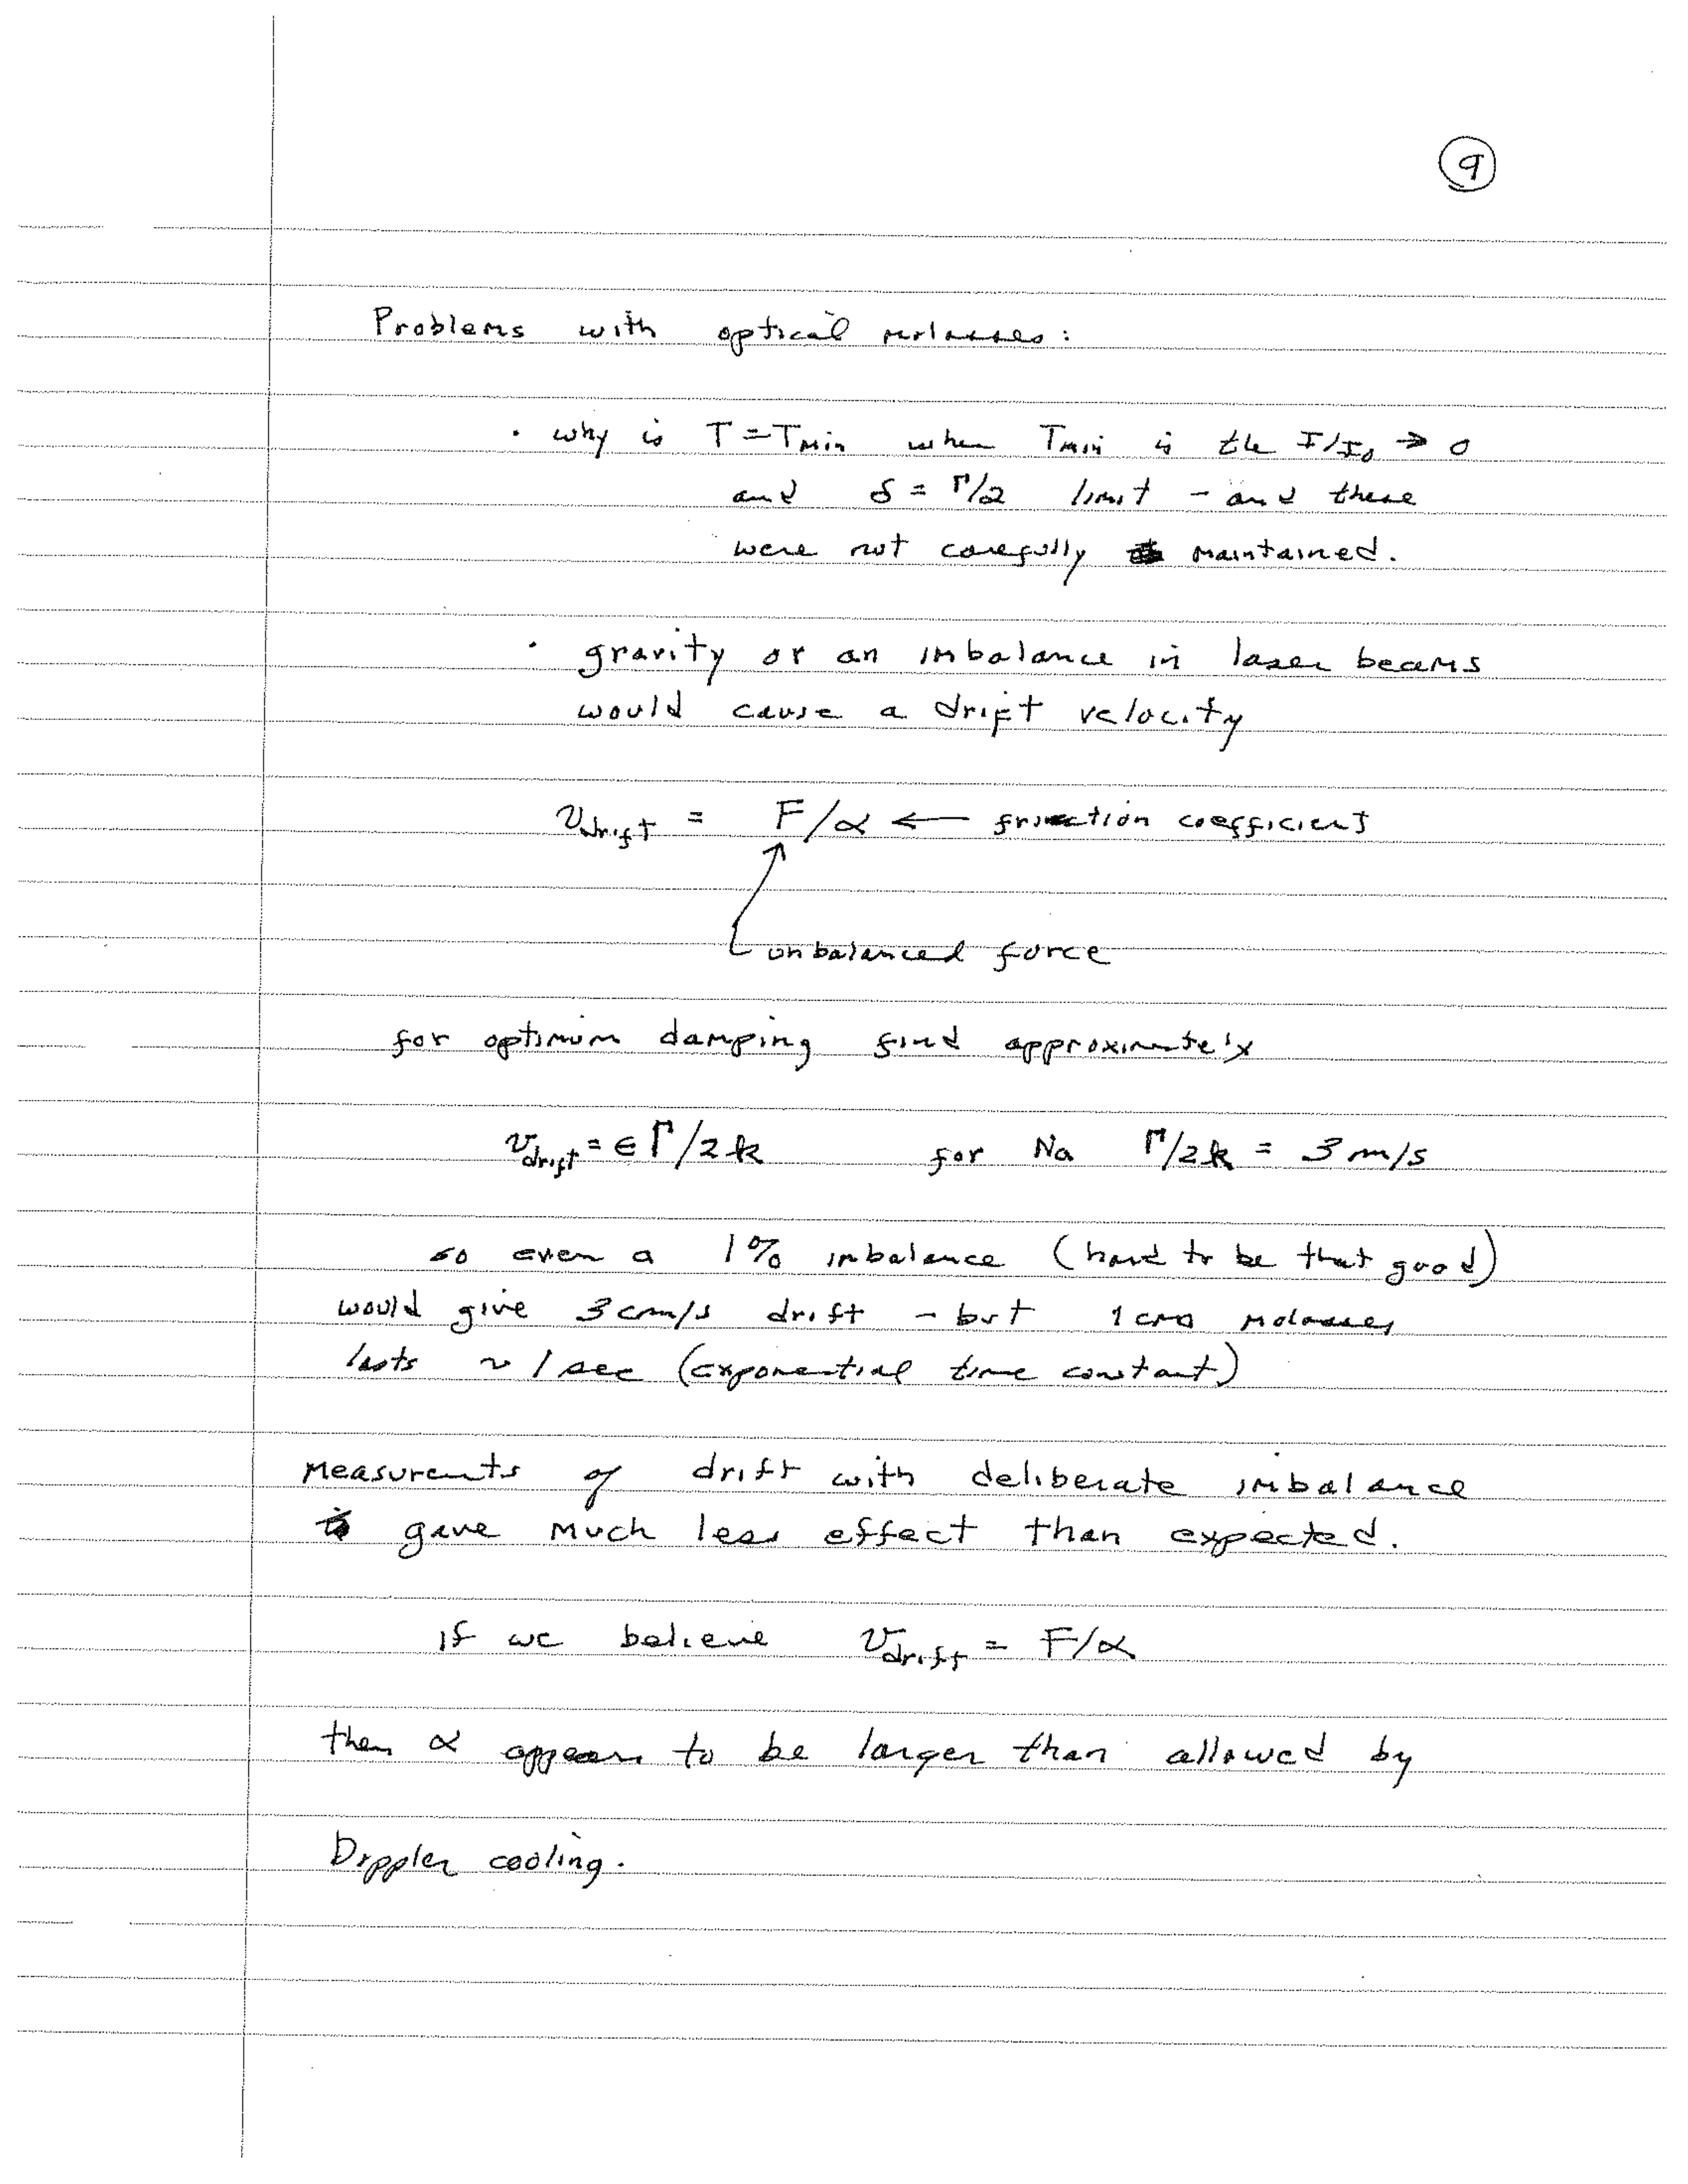 9
Problems with optical molasses:
· why is T = Tmin when Tmin is the I/I₀ → 0
and δ = Γ/2 limit - and these
were not carefully maintained.
· gravity or an imbalance in laser beams
would cause a drift velocity
v_drift = F/α ← friction coefficient
unbalanced force
for optimum damping find approximately
v_drift = ϵ Γ/2k for Na Γ/2k = 3 m/s
so even a 1% imbalance (hard to be that good)
would give 3 cm/s drift - but 1 cm molasses
lasts ~ 1 sec (exponential time constant)
Measurents of drift with deliberate imbalance
gave much less effect than expected.
If we believe v_drift = F/α
then α appears to be larger than allowed by
Doppler cooling.